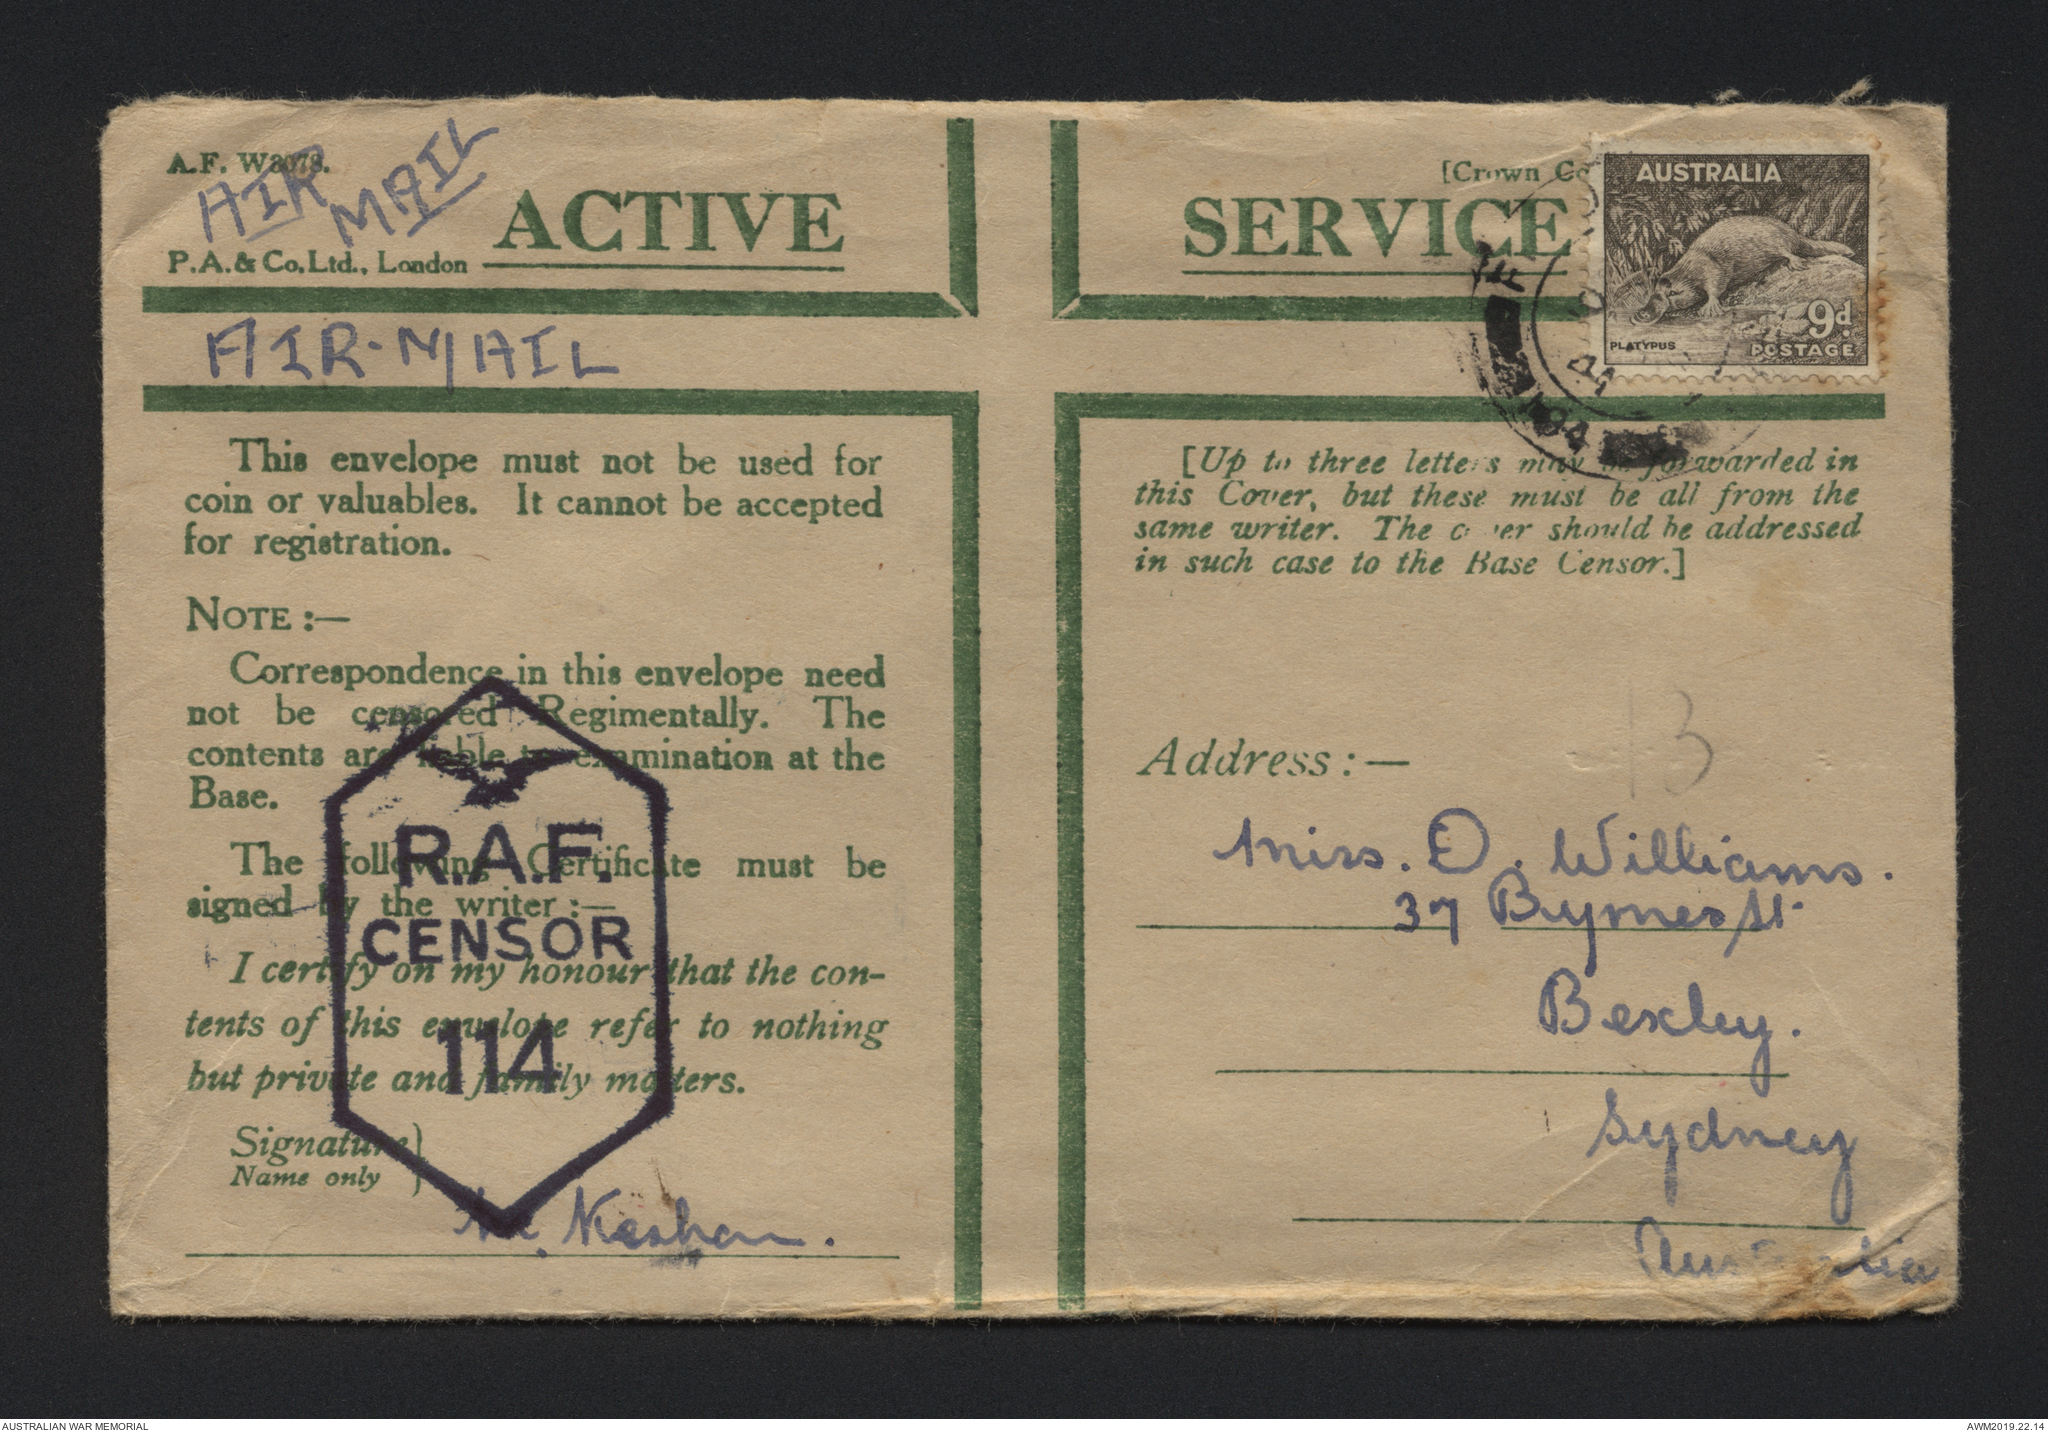 A.F. W3078.
AIR MAIL
P.A. & Co. Ltd., London
ACTIVE SERVICE
[Crown Co
AUSTRALIA
9d.
PLATYPUS
POSTAGE
194
AIR-MAIL
This envelope must not be used for
coin or valuables. It cannot be accepted
for registration.
NOTE :—
Correspondence in this envelope need
not be censored Regimentally. The
contents are liable to examination at the
Base.
The following Certificate must be
signed by the writer :—
I certify on my honour that the con-
tents of this envelope refer to nothing
but private and family matters.
Signature }
Name only
Keshan.
R.A.F.
CENSOR
114
[Up to three letters may be forwarded in
this Cover, but these must be all from the
same writer. The cover should be addressed
in such case to the Base Censor.]
13
Address :—
Miss. O. Williams.
37 Bymes St.
Bexley.
Sydney
Australia
AUSTRALIAN WAR MEMORIAL
AWM2019.22.14